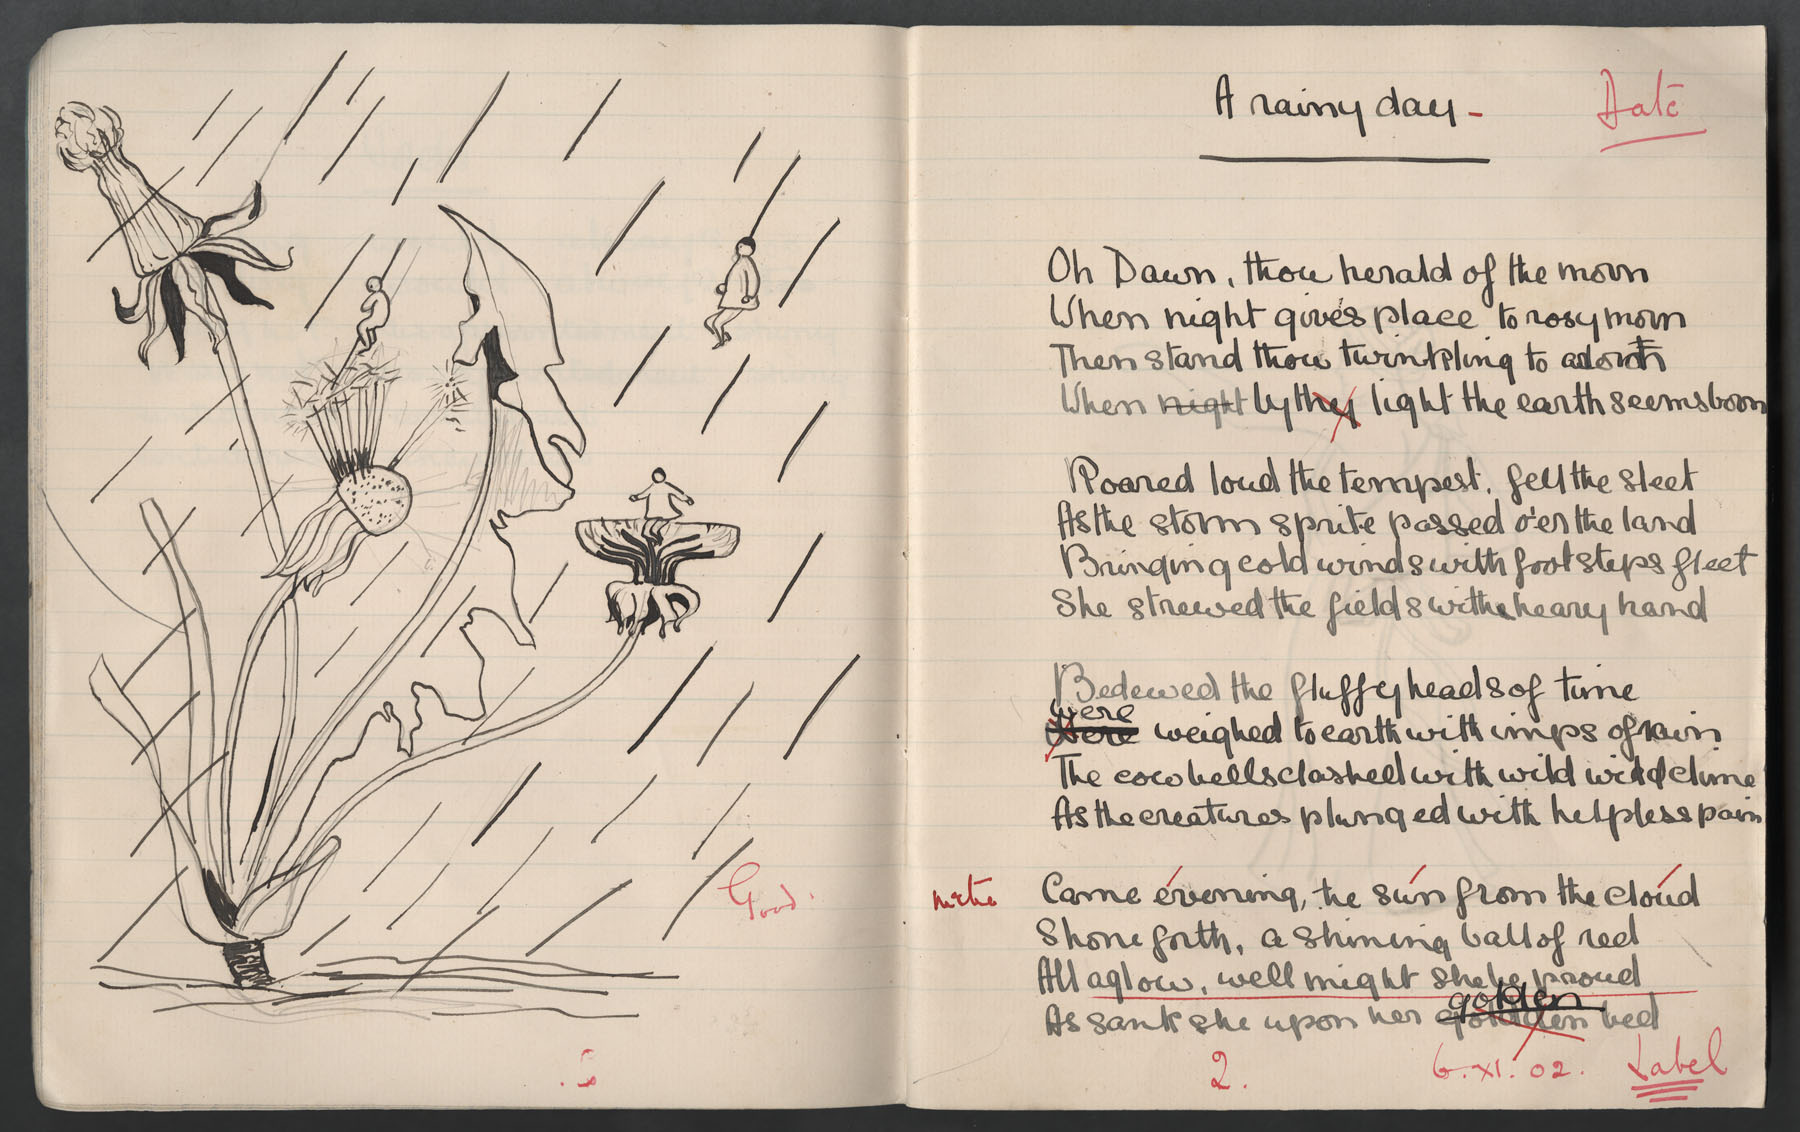 Good.
A rainy day -
Date
Oh Dawn, thou herald of the morn
When night gives place to rosy morn
Then stand thou twinkling to adorn
When night by they light the earth seems born
Roared loud the tempest, fell the sleet
As the storm sprite passed o'er the land
Bringing cold winds with footsteps fleet
She strewed the fields with heavy hand
Bedewed the fluffy heads of time
were
were weighed to earth with imps of rain
The cow bells clashed with wild wild chime
As the creatures plunged with helpless pain
metre Came evening, the sun from the cloud
Shone forth, a shining ball of red
All aglow, well might she be proud
golden
As sank she upon her goldden bed
2.
6. XI. 02.
Label